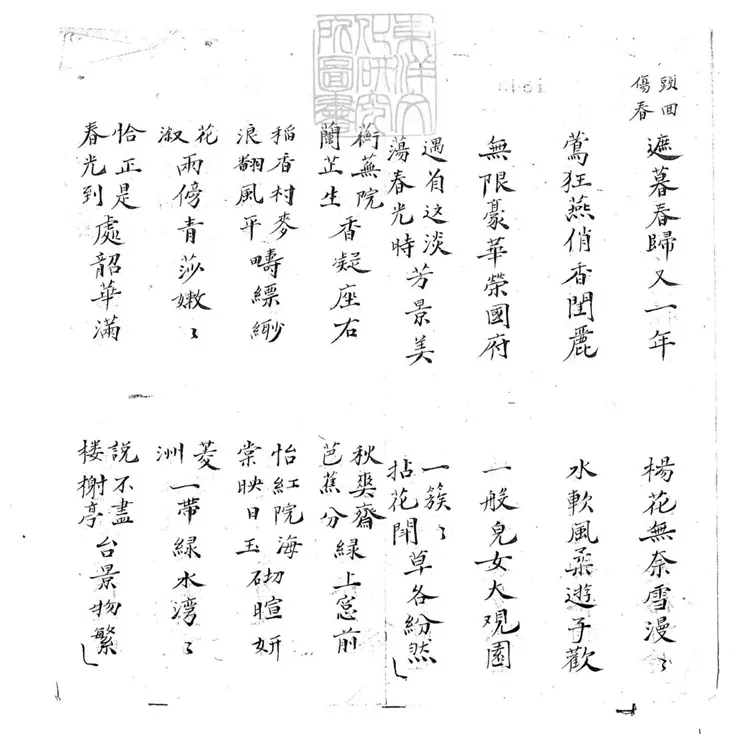 東洋文化研究所圖書
頭回
傷春
遮暮春歸又一年
楊花無奈雪漫〻
鶯狂燕俏香閨麗
水軟風柔遊子歡
無限豪華榮國府
一般兒女大观園
遇有这淡蕩春光時芳景美
一簇〻拈花閗草各紛然
蘅蕪院蘭芷生香凝座右
秋爽齋芭蕉分緑上窓前
稻香村麥浪翻風平疇縹緲
怡紅院海棠映日玉砌暄妍
花淑雨傍青莎嫩〻
菱洲一帶緑水湾〻
恰正是春光到處韶華滿
說不盡楼榭亭台景物繁